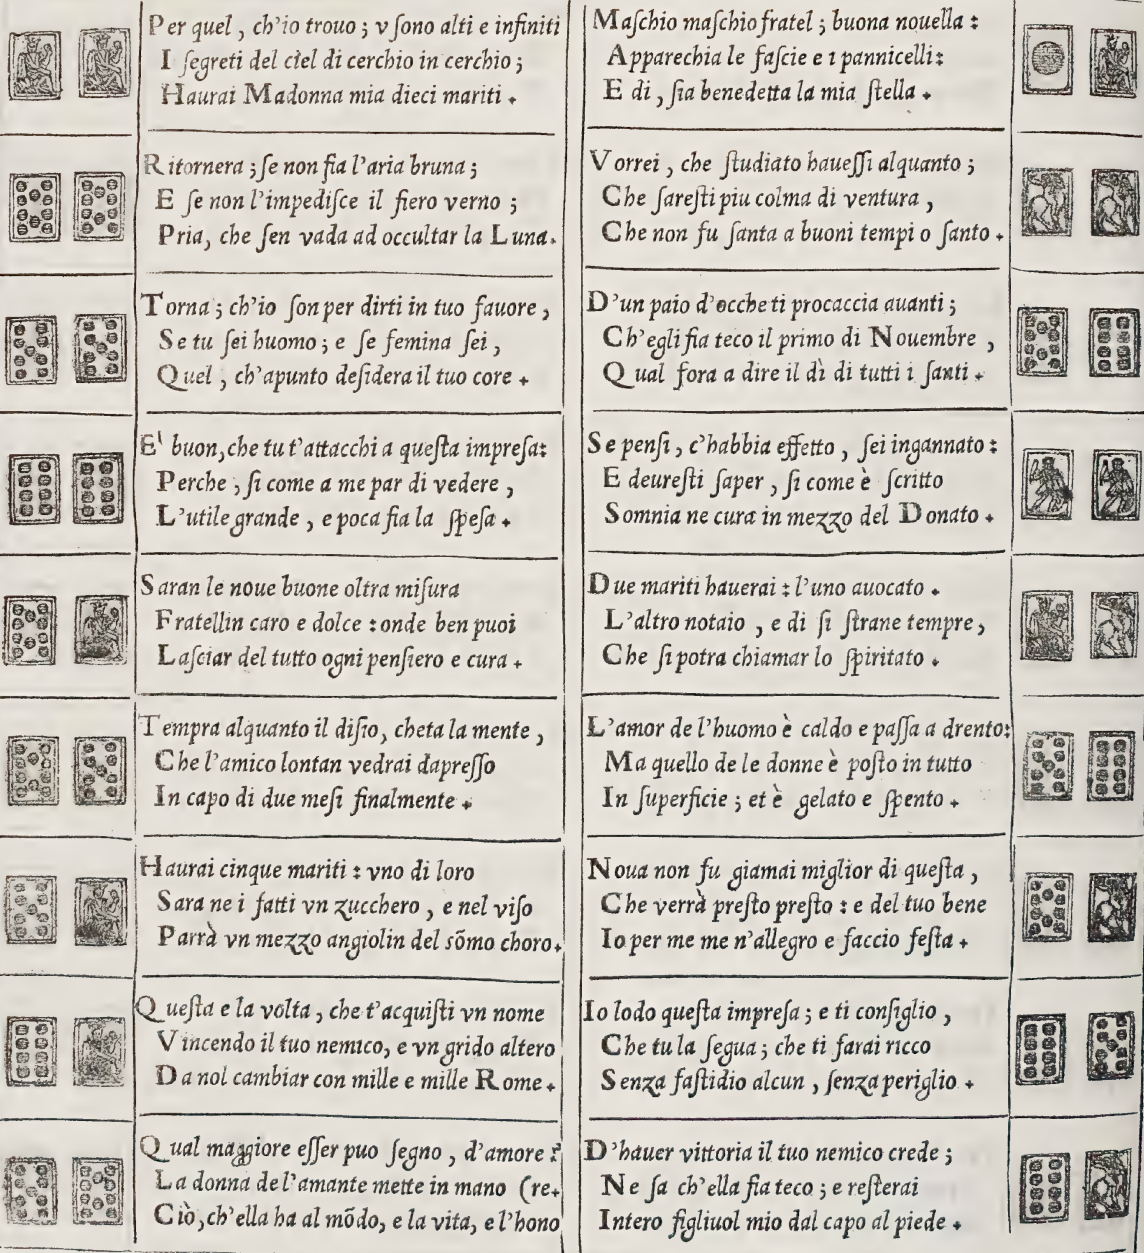 Per quel, ch'io trouo; v ſono alti e infiniti
I ſegreti del ciel di cerchio in cerchio;
Haurai Madonna mia dieci mariti.
Ritornera; ſe non fia l'aria bruna;
E ſe non l'impediſce il fiero verno;
Pria, che ſen vada ad occultar la Luna.
Torna; ch'io ſon per dirti in tuo fauore,
Se tu ſei huomo; e ſe femina ſei,
Quel, ch'apunto deſidera il tuo core.
E' buon, che tu t'attacchi a queſta impreſa:
Perche, ſi come a me par di vedere,
L'utile grande, e poca fia la ſpeſa.
Saran le noue buone oltra miſura
Fratellin caro e dolce: onde ben puoi
Laſciar del tutto ogni penſiero e cura.
Tempra alquanto il diſio, cheta la mente,
Che l'amico lontan vedrai dapreſſo
In capo di due meſi finalmente.
Haurai cinque mariti: vno di loro
Sara ne i fatti vn zucchero, e nel viſo
Parrà vn mezzo angiolin del sõmo choro.
Queſta e la volta, che t'acquiſti vn nome
Vincendo il tuo nemico, e vn grido altero
Da nol cambiar con mille e mille Rome.
Qual maggiore eſſer puo ſegno, d'amore?
La donna de l'amante mette in mano (re.
Ciò, ch'ella ha al mõdo, e la vita, e l'hono
Maſchio maſchio fratel; buona nouella:
Apparechia le faſcie e i pannicelli:
E di, ſia benedetta la mia ſtella.
Vorrei, che ſtudiato haueſſi alquanto;
Che ſareſti piu colma di ventura,
Che non fu ſanta a buoni tempi o ſanto.
D'un paio d'ocche ti procaccia auanti;
Ch'egli fia teco il primo di Nouembre,
Qual fora a dire il dì di tutti i ſanti.
Se penſi, c'habbia effetto, ſei ingannato:
E deureſti ſaper, ſi come è ſcritto
Somnia ne cura in mezzo del Donato.
Due mariti hauerai: l'uno auocato.
L'altro notaio, e di ſi ſtrane tempre,
Che ſi potra chiamar lo ſpiritato.
L'amor de l'huomo è caldo e paſſa a drento:
Ma quello de le donne è poſto in tutto
In ſuperficie; et è gelato e ſpento.
Noua non fu giamai miglior di queſta,
Che verrà preſto preſto: e del tuo bene
Io per me me n'allegro e faccio feſta.
Io lodo queſta impreſa; e ti conſiglio,
Che tu la ſegua; che ti farai ricco
Senza faſtidio alcun, ſenza periglio.
D'hauer vittoria il tuo nemico crede;
Ne ſa ch'ella fia teco; e reſterai
Intero figliuol mio dal capo al piede.